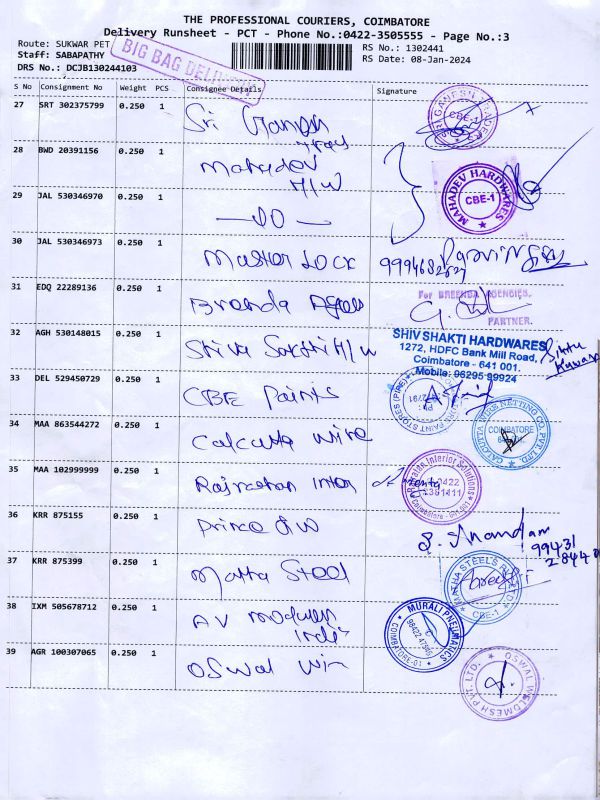 THE PROFESSIONAL COURIERS, COIMBATORE
Delivery Runsheet - PCT - Phone No.:0422-3505555 - Page No.:3
Route: SUKWAR PET
RS No.: 1302441
Staff: SABAPATHY
RS Date: 08-Jan-2024
DRS No.: DCJB130244103
BIG BAG DELIVERY
S No Consignment No Weight PCS Consignee Details Signature
27 SRT 302375799 0.250 1 Sri Ganesh
GANESH CBE-1
28 BWD 20391156 0.250 1 Mahadev H/W
MAHADEV HARDWARES CBE-1
29 JAL 530346970 0.250 1 — DO —
30 JAL 530346973 0.250 1 Master Lock
31 EDQ 22289136 0.250 1
For BREENDA AGENCIES,
PARTNER.
32 AGH 530148015 0.250 1 Shiva Sakthi H/W
SHIV SHAKTI HARDWARES
1272, HDFC Bank Mill Road,
Coimbatore - 641 001.
Mobile: 96295 89924
33 DEL 529450729 0.250 1 CBE Paints
PAINT STORES
34 MAA 863544272 0.250 1 Calcutta wire
CALCUTTA WIRE NETTING CO. PVT. LTD. COIMBATORE
35 MAA 102999999 0.250 1 Rajasthan Inter
Rajasthan Interior Solutions
0422
2381411
Coimbatore - 641 001
36 KRR 875155 0.250 1 Prince H/W
S. Anandam
99431
28440
37 KRR 875399 0.250 1 Matha Steel
MATHA STEELS CBE-1
38 IXM 505678712 0.250 1 AV modern Indus
MURALI PNEUMATICS COIMBATORE-01
39 AGR 100307065 0.250 1 Oswal Wir
OSWAL WELDMESH PVT. LTD.